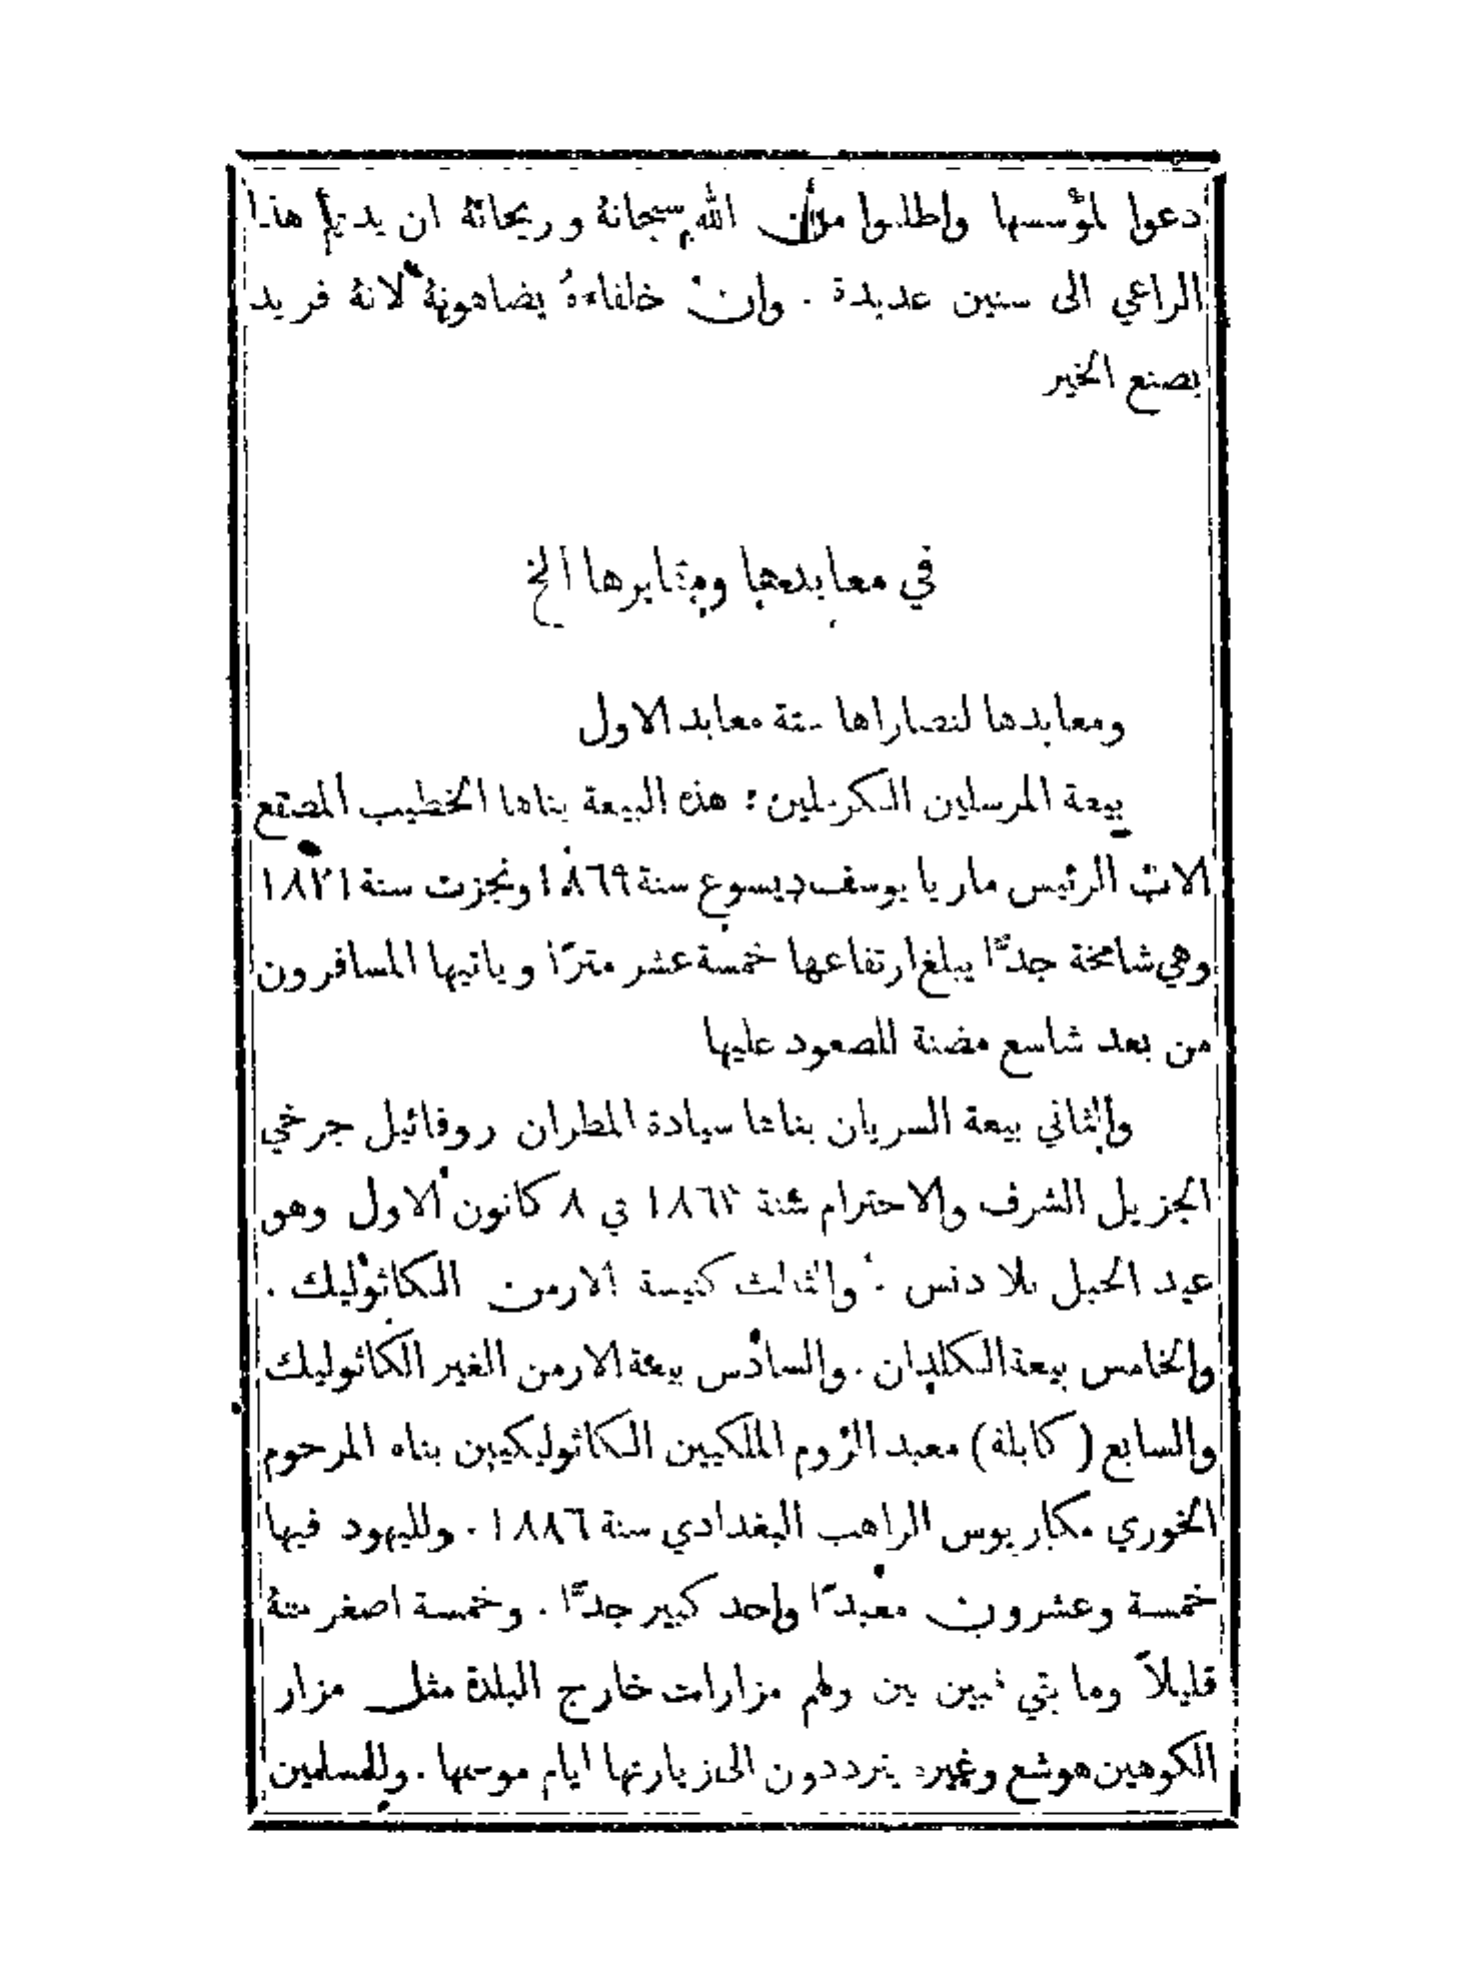 دعوا لمؤسسها واطلبوا من الله سبحانهُ وريحانهُ ان يديم هذا
الراعي الى سنين عديدة . وان خلفاءهُ يضاهونهُ لانهُ فريد
بصنع الخير
في معابدها ومقابرها الخ
ومعابدها لنصاراها ستة معابد الاول
بيعة المرسلين الكرملين : هذه البيعة بناها الخطيب المصقع
الاب الرئيس ماريا يوسف ديسوع سنة ١٨٦٩ ونجزت سنة ١٨٧١
وهي شامخة جدًّا يبلغ ارتفاعها خمسة عشر مترًا وياتيها المسافرون
من بعد شاسع مضنة للصعود عليها
والثاني بيعة السريان بناها سيادة المطران روفائيل جرخي
الجزيل الشرف والاحترام سنة في ٨ كانون الاول وهو
عيد الحبل بلا دنس : والثالث كنيسة الارمن الكاثوليك .
والخامس بيعة الكلدان . والسادس بيعة الارمن الغير الكاثوليك
والسابع (كابلة) معبد الروم الملكيين الكاثوليكيين بناه المرحوم
الخوري مكاريوس الراهب البغدادي سنة ١٨٨٦ . ولليهود فيها
خمسة وعشرون معبدًا واحد كبير جدًّا . وخمسة اصغر منهُ
قليلاً وما بقي فبين بين ولهم مزارات خارج البلدة مثل مزار
الكوهين هوشع وغيره يترددون الى زيارتها ايام موسمها . وللمسلمين